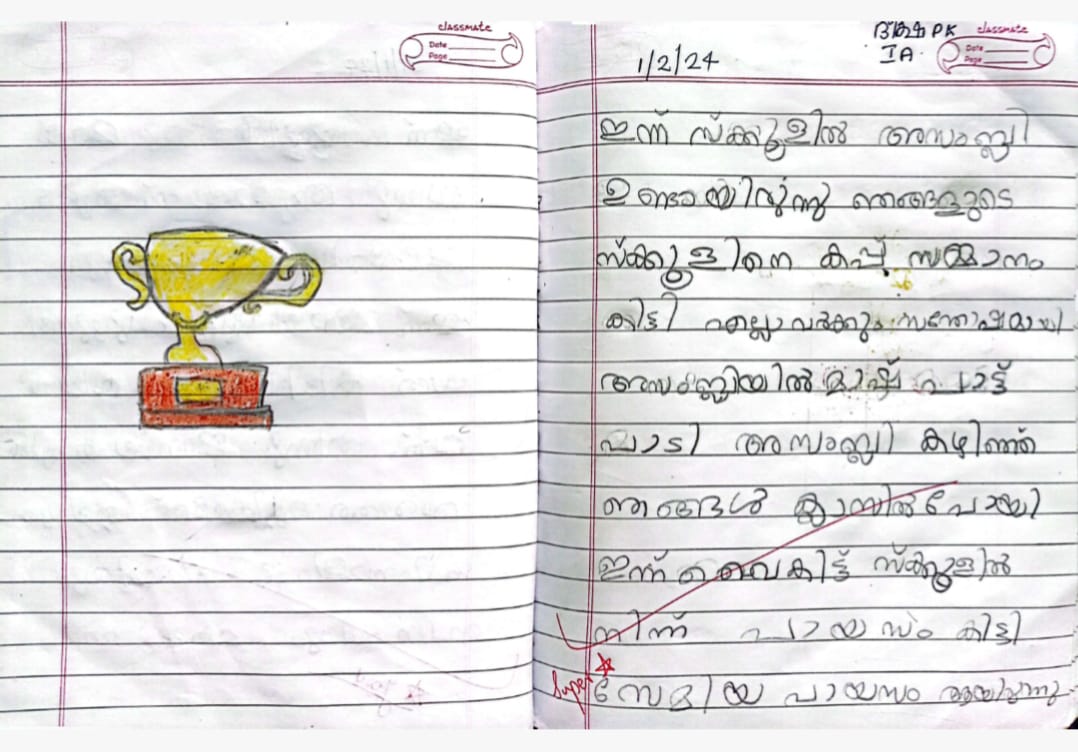 classmate
Date
Page
PK classmate
1/2/24 IA Date
Page
ഇന്ന് സ്ക്കൂളിൽ അസംബ്ലി
ഉണ്ടായിരുന്നു ഞങ്ങളുടെ
സ്ക്കൂളിനെ കപ്പ് സമ്മാനം
കിട്ടി എല്ലാവർക്കും സന്തോഷമായി
അസംബ്ലിയിൽ മാഷ് പാട്ട്
പാടി അസംബ്ലി കഴിഞ്ഞ്
ഞങ്ങൾ ക്ലാസിൽ പോയി
ഇന്ന് വൈകിട്ട് സ്ക്കൂളിൽ
നിന്ന് പായസം കിട്ടി
Super സേമിയ പായസം ആയിരുന്നു